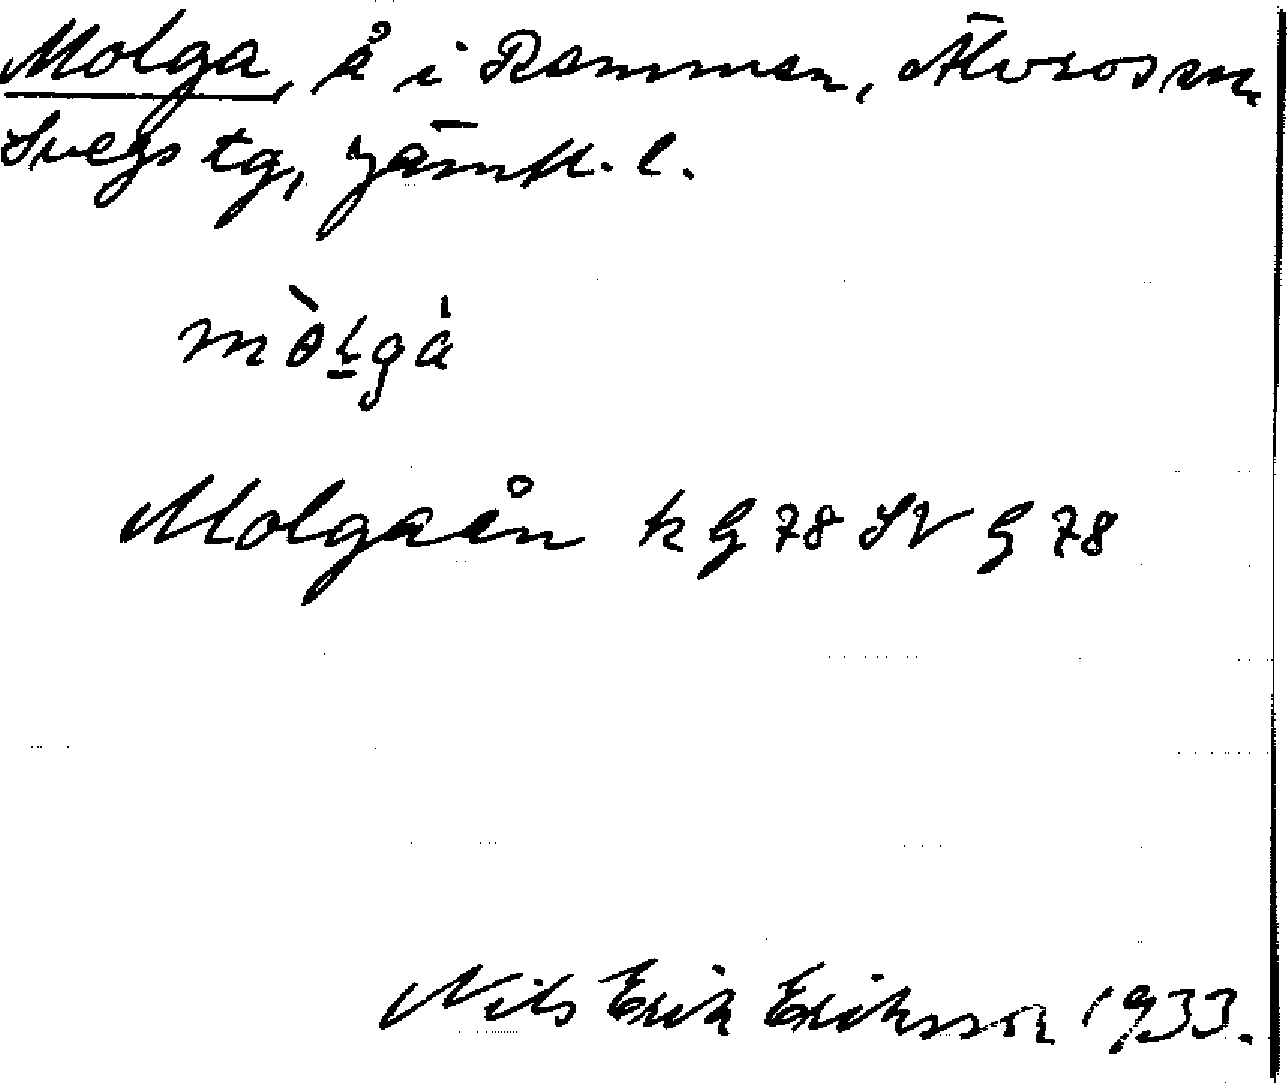 Molga, å i Remmen, Älvros sn,
Svegs tg, Jämtl. l.
mòlgá
Molgaån k G 78 SV G 78
Nils Erik Eriksson 1933.